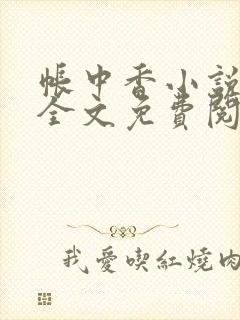 帳中香小說
全文免費閱
我愛喫紅燒肉